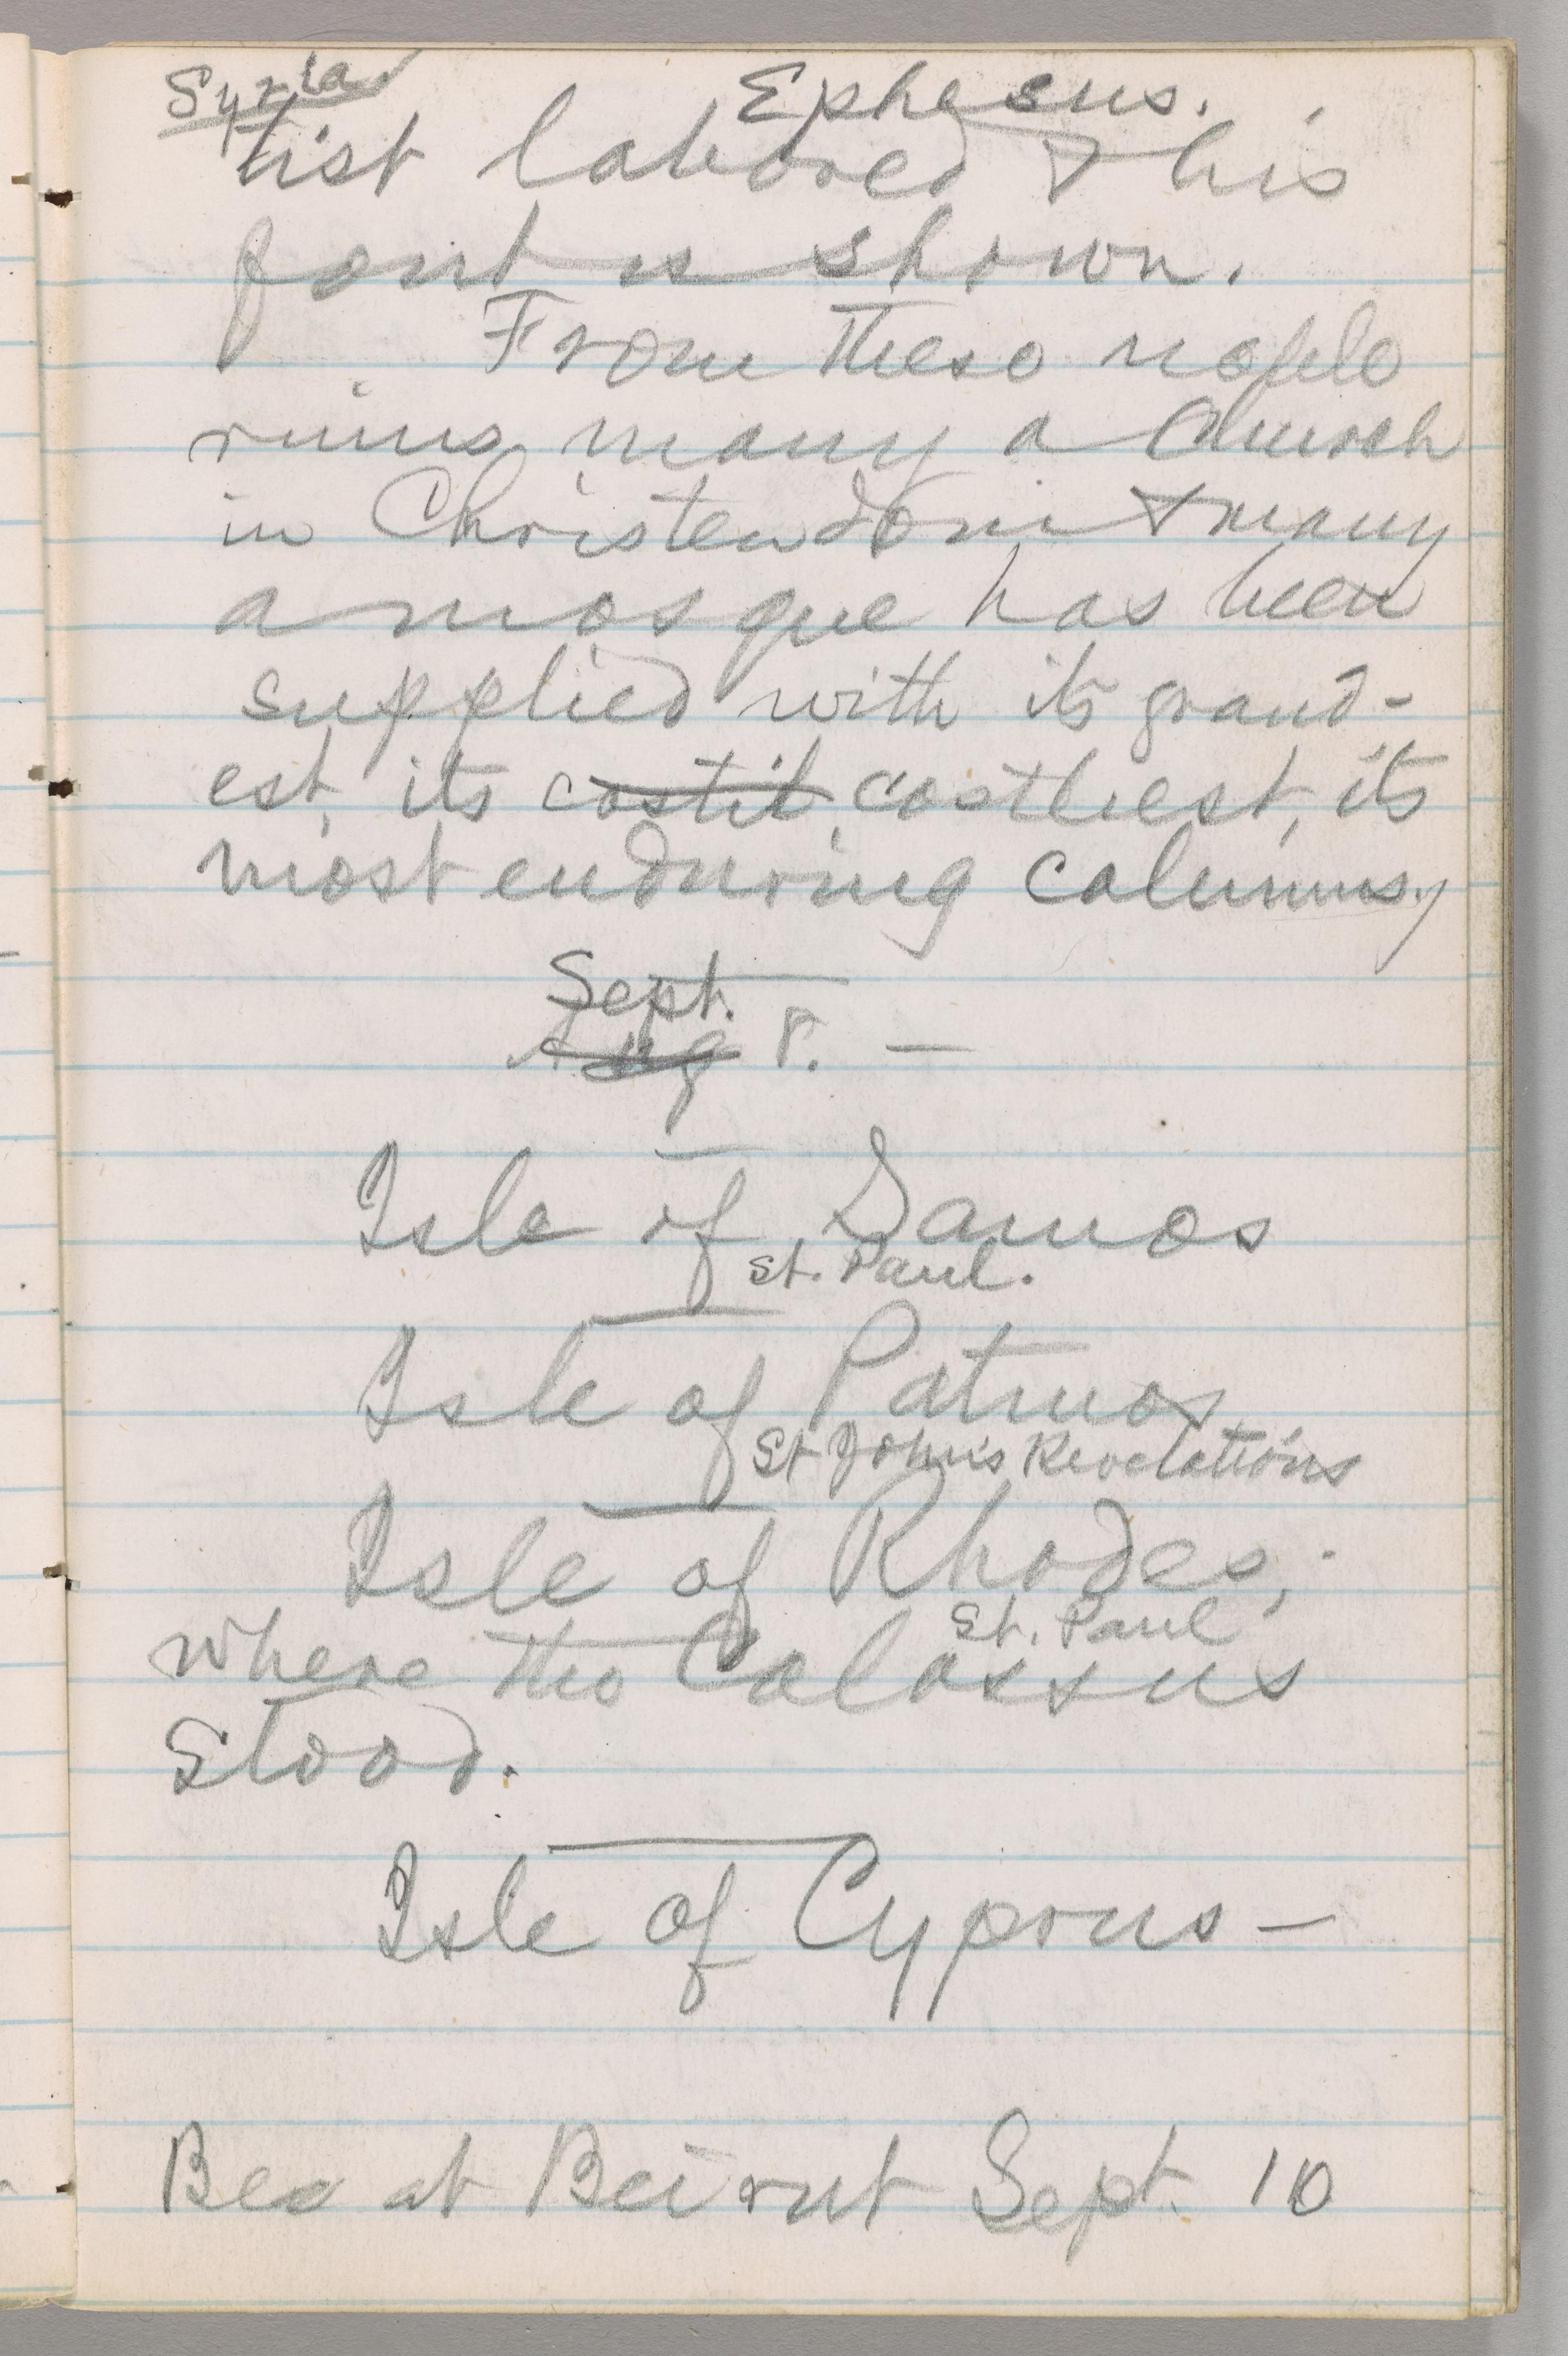 Syria Ephesus.
tist labored & his
font is shown.
From these noble
ruins many a Church
in Christendom & many
a mosque has been
supplied with its grand-
est, its costil, costliest, its
most enduring columns.
Sept.
Aug 8. —
Isle of Samos
St. Paul.
Isle of Patmos
St John's Revelations
Isle of Rhodes,
St. Paul
where the Colossus
Stood.
Isle of Cyprus —
at Beirut Sept. 10